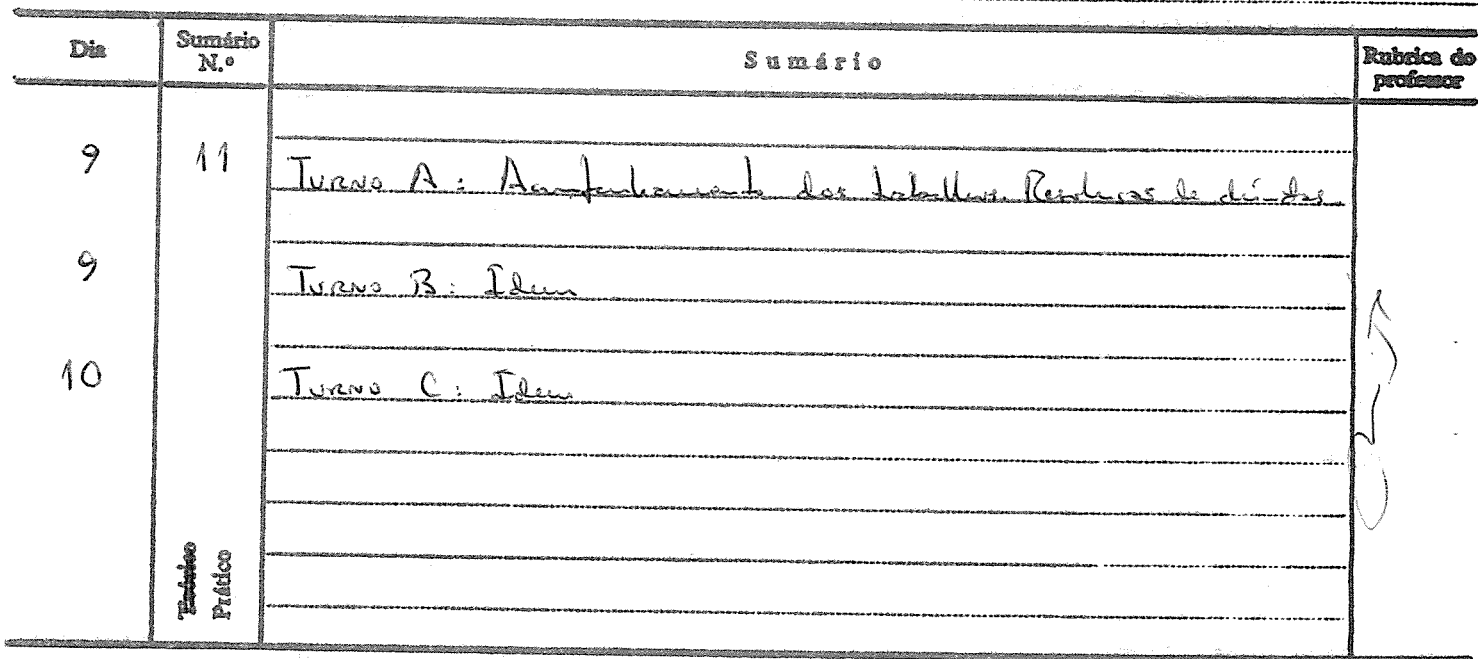 Dia Sumário N.º Sumário Rubrica do professor
9 11 Turno A: Acompanhamento dos trabalhos. Resolução de dúvidas.
9 Turno B: Idem
10 Turno C: Idem
Teórico
Prático